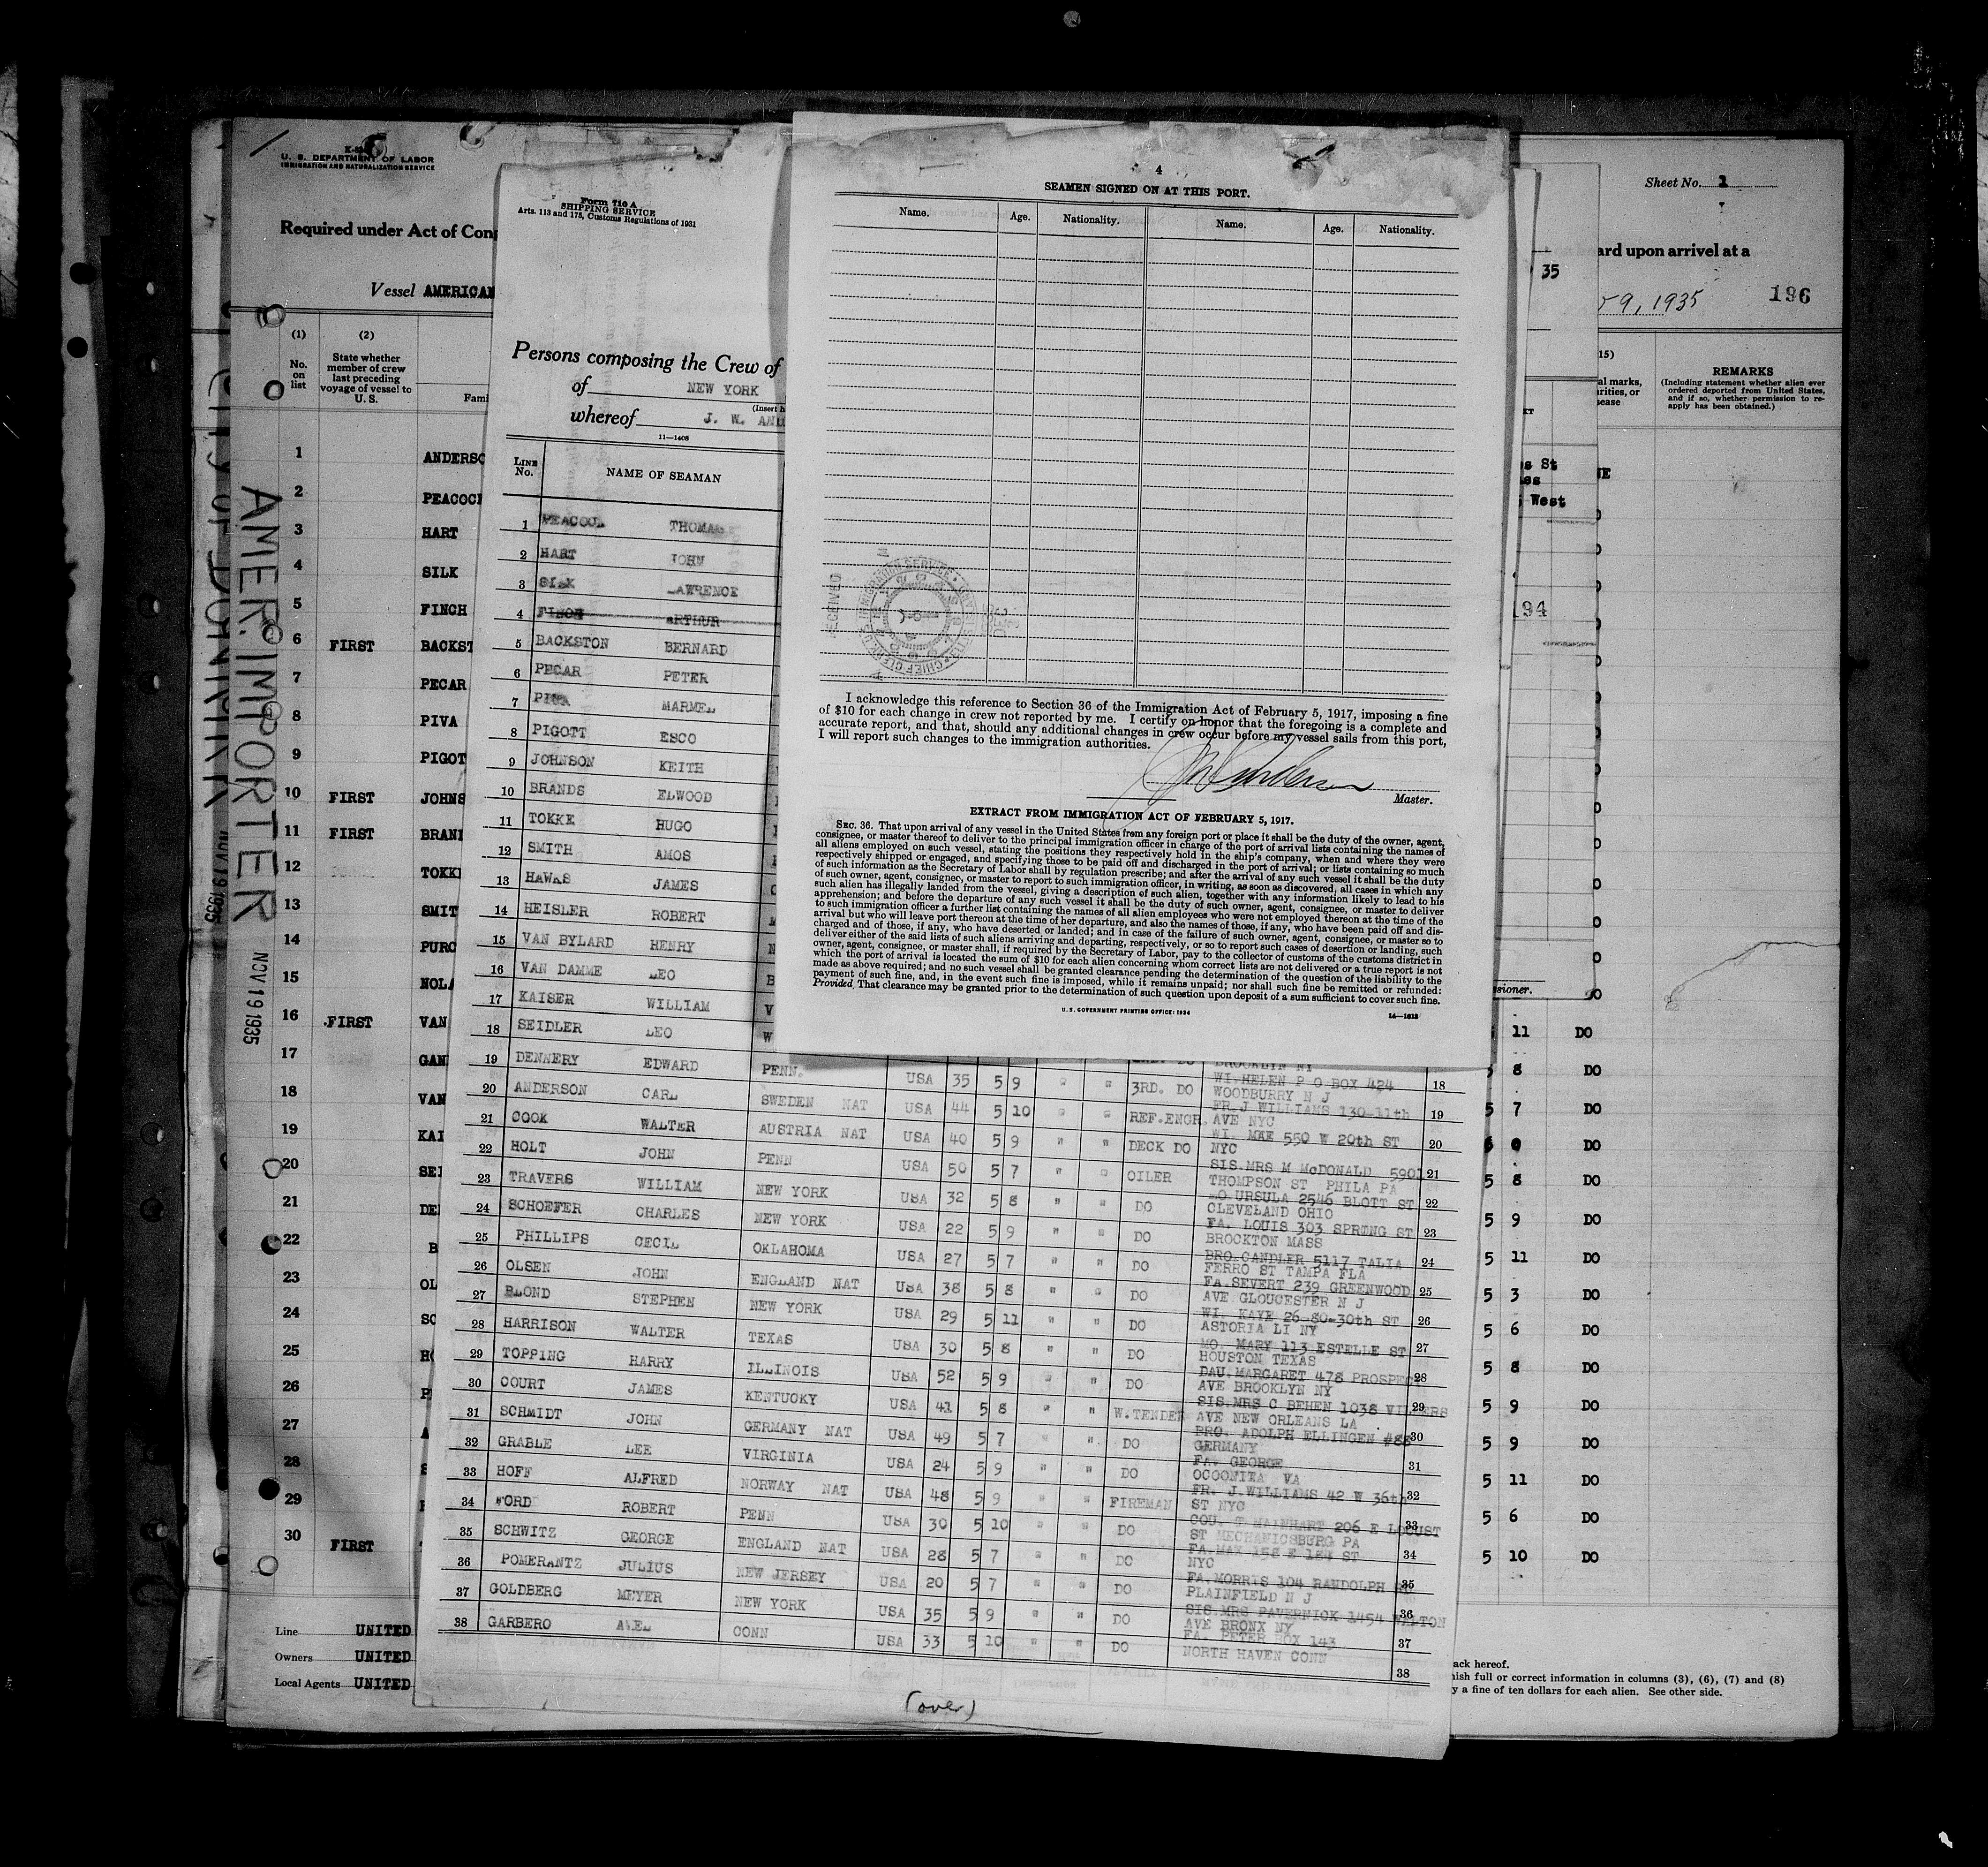 K-5
U. S. DEPARTMENT OF LABOR
IMMIGRATION AND NATURALIZATION SERVICE
Required under Act of Con
Vessel AMERICAN
(1) (2)
No. on list
State whether member of crew last preceding voyage of vessel to U. S.
Fami
1 ANDERSO
2 PEACOC
3 HART
4 SILK
5 FINCH
6 FIRST BACKST
7 PECAR
8 PIVA
9 PIGOT
10 FIRST JOHNS
11 FIRST BRAN
12 TOKK
13 SMIT
14 PURC
15 NOLA
16 FIRST VAN
17 GAN
18 VAN
19 KAI
20 SEI
21 DE
22 B
23 OL
24 SC
25 H
26 P
27
28 S
29
30 FIRST
Line UNITED
Owners UNITED
Local Agents UNITED
CITY OF DUNKIRK
NOV 19 1935
AMER. IMPORTER
NOV 19 1935
Form 710 A
SHIPPING SERVICE
Arts. 113 and 175, Customs Regulations of 1931
Persons composing the Crew of
of NEW YORK
(Insert h
whereof J. W. AND
11—1408
LINE No. NAME OF SEAMAN
1 PEACOCK THOMAS
2 HART JOHN
3 SILK LAWRENCE
4 FINCH ARTHUR
5 BACKSTON BERNARD
6 PECAR PETER
7 PIVA MARMEL
8 PIGOTT ESCO
9 JOHNSON KEITH
10 BRANDS ELWOOD
11 TOKKE HUGO
12 SMITH AMOS
13 HAWKS JAMES
14 HEISLER ROBERT
15 VAN BYLARD HENRY
16 VAN DAMME LEO
17 KAISER WILLIAM
18 SEIDLER LEO
BROOKLYN NY 18
19 DENNERY EDWARD PENN. USA 35 5 9 " " 3RD. DO WI HELEN P O BOX 424
WOODBURRY N J 19
20 ANDERSON CARL SWEDEN NAT USA 44 5 10 " " REF.ENGR. FR.J WILLIAMS 130-11th
AVE NYC 20
21 COOK WALTER AUSTRIA NAT USA 40 5 9 " " DECK DO WI. MAE 550 W 20th ST
NYC 21
22 HOLT JOHN PENN USA 50 5 7 " " OILER SIS.MRS M McDONALD 5901
THOMPSON ST PHILA PA 22
23 TRAVERS WILLIAM NEW YORK USA 32 5 8 " " DO MO URSULA 2546 BLOTT ST
CLEVELAND OHIO 23
24 SCHOEFER CHARLES NEW YORK USA 22 5 9 " " DO FA. LOUIS 303 SPRING ST
BROCKTON MASS 24
25 PHILLIPS CECIL OKLAHOMA USA 27 5 7 " " DO BRO.CANDLER 5117 TALIA
FERRO ST TAMPA FLA 25
26 OLSEN JOHN ENGLAND NAT USA 38 5 8 " " DO FA.SEVERT 239 GREENWOOD
AVE GLOUCESTER N J 26
27 BLOND STEPHEN NEW YORK USA 29 5 11 " " DO WI. KAYE 26-80-30th ST
ASTORIA LI NY 27
28 HARRISON WALTER TEXAS USA 30 5 8 " " DO MO. MARY 113 ESTELLE ST
HOUSTON TEXAS 28
29 TOPPING HARRY ILLINOIS USA 52 5 9 " " DO DAU.MARGARET 478 PROSPECT
AVE BROOKLYN NY 29
30 COURT JAMES KENTUCKY USA 41 5 8 " " W.TENDER SIS.MRS C BEHEN 1038
AVE NEW ORLEANS LA 30
31 SCHMIDT JOHN GERMANY NAT USA 49 5 7 " " DO BRO. ADOLPH ELLINGEN #88
GERMANY 31
32 GRABLE LEE VIRGINIA USA 24 5 9 " " DO FA. GEORGE
VA 32
33 HOFF ALFRED NORWAY NAT USA 48 5 9 " " FIREMAN FR. J.WILLIAMS 42 W 36th
ST NYC 33
34 FORD ROBERT PENN USA 30 5 10 " " DO COU. T MAINHART 206 E LOCUST
ST MECHANICSBURG PA 34
35 SCHWITZ GEORGE ENGLAND NAT USA 28 5 7 " " DO FA.MAX
NYC 35
36 POMERANTZ JULIUS NEW JERSEY USA 20 5 7 " " DO FA.MORRIS 104 RANDOLPH
PLAINFIELD N J 36
37 GOLDBERG MEYER NEW YORK USA 35 5 9 " " DO SIS.MRS PAVERNICK 1454 WALTON
AVE BRONX NY 37
38 GARBERO AXEL CONN USA 33 5 10 " " DO FA. PETER BOX 143
NORTH HAVEN CONN 38
(over)
4
SEAMEN SIGNED ON AT THIS PORT.
Name. Age. Nationality. Name. Age. Nationality.
RECEIVED
IMMIGRATION SERVICE
CHIEF CLERK
I acknowledge this reference to Section 36 of the Immigration Act of February 5, 1917, imposing a fine
of $10 for each change in crew not reported by me. I certify on honor that the foregoing is a complete and
accurate report, and that, should any additional changes in crew occur before my vessel sails from this port,
I will report such changes to the immigration authorities.
JW Anderson
Master.
EXTRACT FROM IMMIGRATION ACT OF FEBRUARY 5, 1917.
SEC. 36. That upon arrival of any vessel in the United States from any foreign port or place it shall be the duty of the owner, agent,
consignee, or master thereof to deliver to the principal immigration officer in charge of the port of arrival lists containing the names of
all aliens employed on such vessel, stating the positions they respectively hold in the ship's company, when and where they were
respectively shipped or engaged, and specifying those to be paid off and discharged in the port of arrival; or lists containing so much
of such information as the Secretary of Labor shall by regulation prescribe; and after the arrival of any such vessel it shall be the duty
of such owner, agent, consignee, or master to report to such immigration officer, in writing, as soon as discovered, all cases in which any
such alien has illegally landed from the vessel, giving a description of such alien, together with any information likely to lead to his
apprehension; and before the departure of any such vessel it shall be the duty of such owner, agent, consignee, or master to deliver
to such immigration officer a further list containing the names of all alien employees who were not employed thereon at the time of the
arrival but who will leave port thereon at the time of her departure, and also the names of those, if any, who have been paid off and dis-
charged and of those, if any, who have deserted or landed; and in case of the failure of such owner, agent, consignee, or master so to
deliver either of the said lists of such aliens arriving and departing, respectively, or so to report such cases of desertion or landing, such
owner, agent, consignee, or master shall, if required by the Secretary of Labor, pay to the collector of customs of the customs district in
which the port of arrival is located the sum of $10 for each alien concerning whom correct lists are not delivered or a true report is not
made as above required; and no such vessel shall be granted clearance pending the determination of the question of the liability to the
payment of such fine, and, in the event such fine is imposed, while it remains unpaid; nor shall such fine be remitted or refunded:
Provided, That clearance may be granted prior to the determination of such question upon deposit of a sum sufficient to cover such fine.
U. S. GOVERNMENT PRINTING OFFICE: 1934 14—1613
Sheet No. 1
ard upon arrival at a
35
9, 1935 196
15)
al marks,
arities, or
sease
REMARKS
(Including statement whether alien ever
ordered deported from United States,
and if so, whether permission to re-
apply has been obtained.)
s St
ss
West
NE
194
sioner.
11 DO
8 DO
5 7 DO
6 0 DO
5 8 DO
5 9 DO
5 11 DO
5 3 DO
5 6 DO
5 8 DO
5 9 DO
5 9 DO
5 11 DO
5 6 DO
5 10 DO
ack hereof.
ish full or correct information in columns (3), (6), (7) and (8)
y a fine of ten dollars for each alien. See other side.